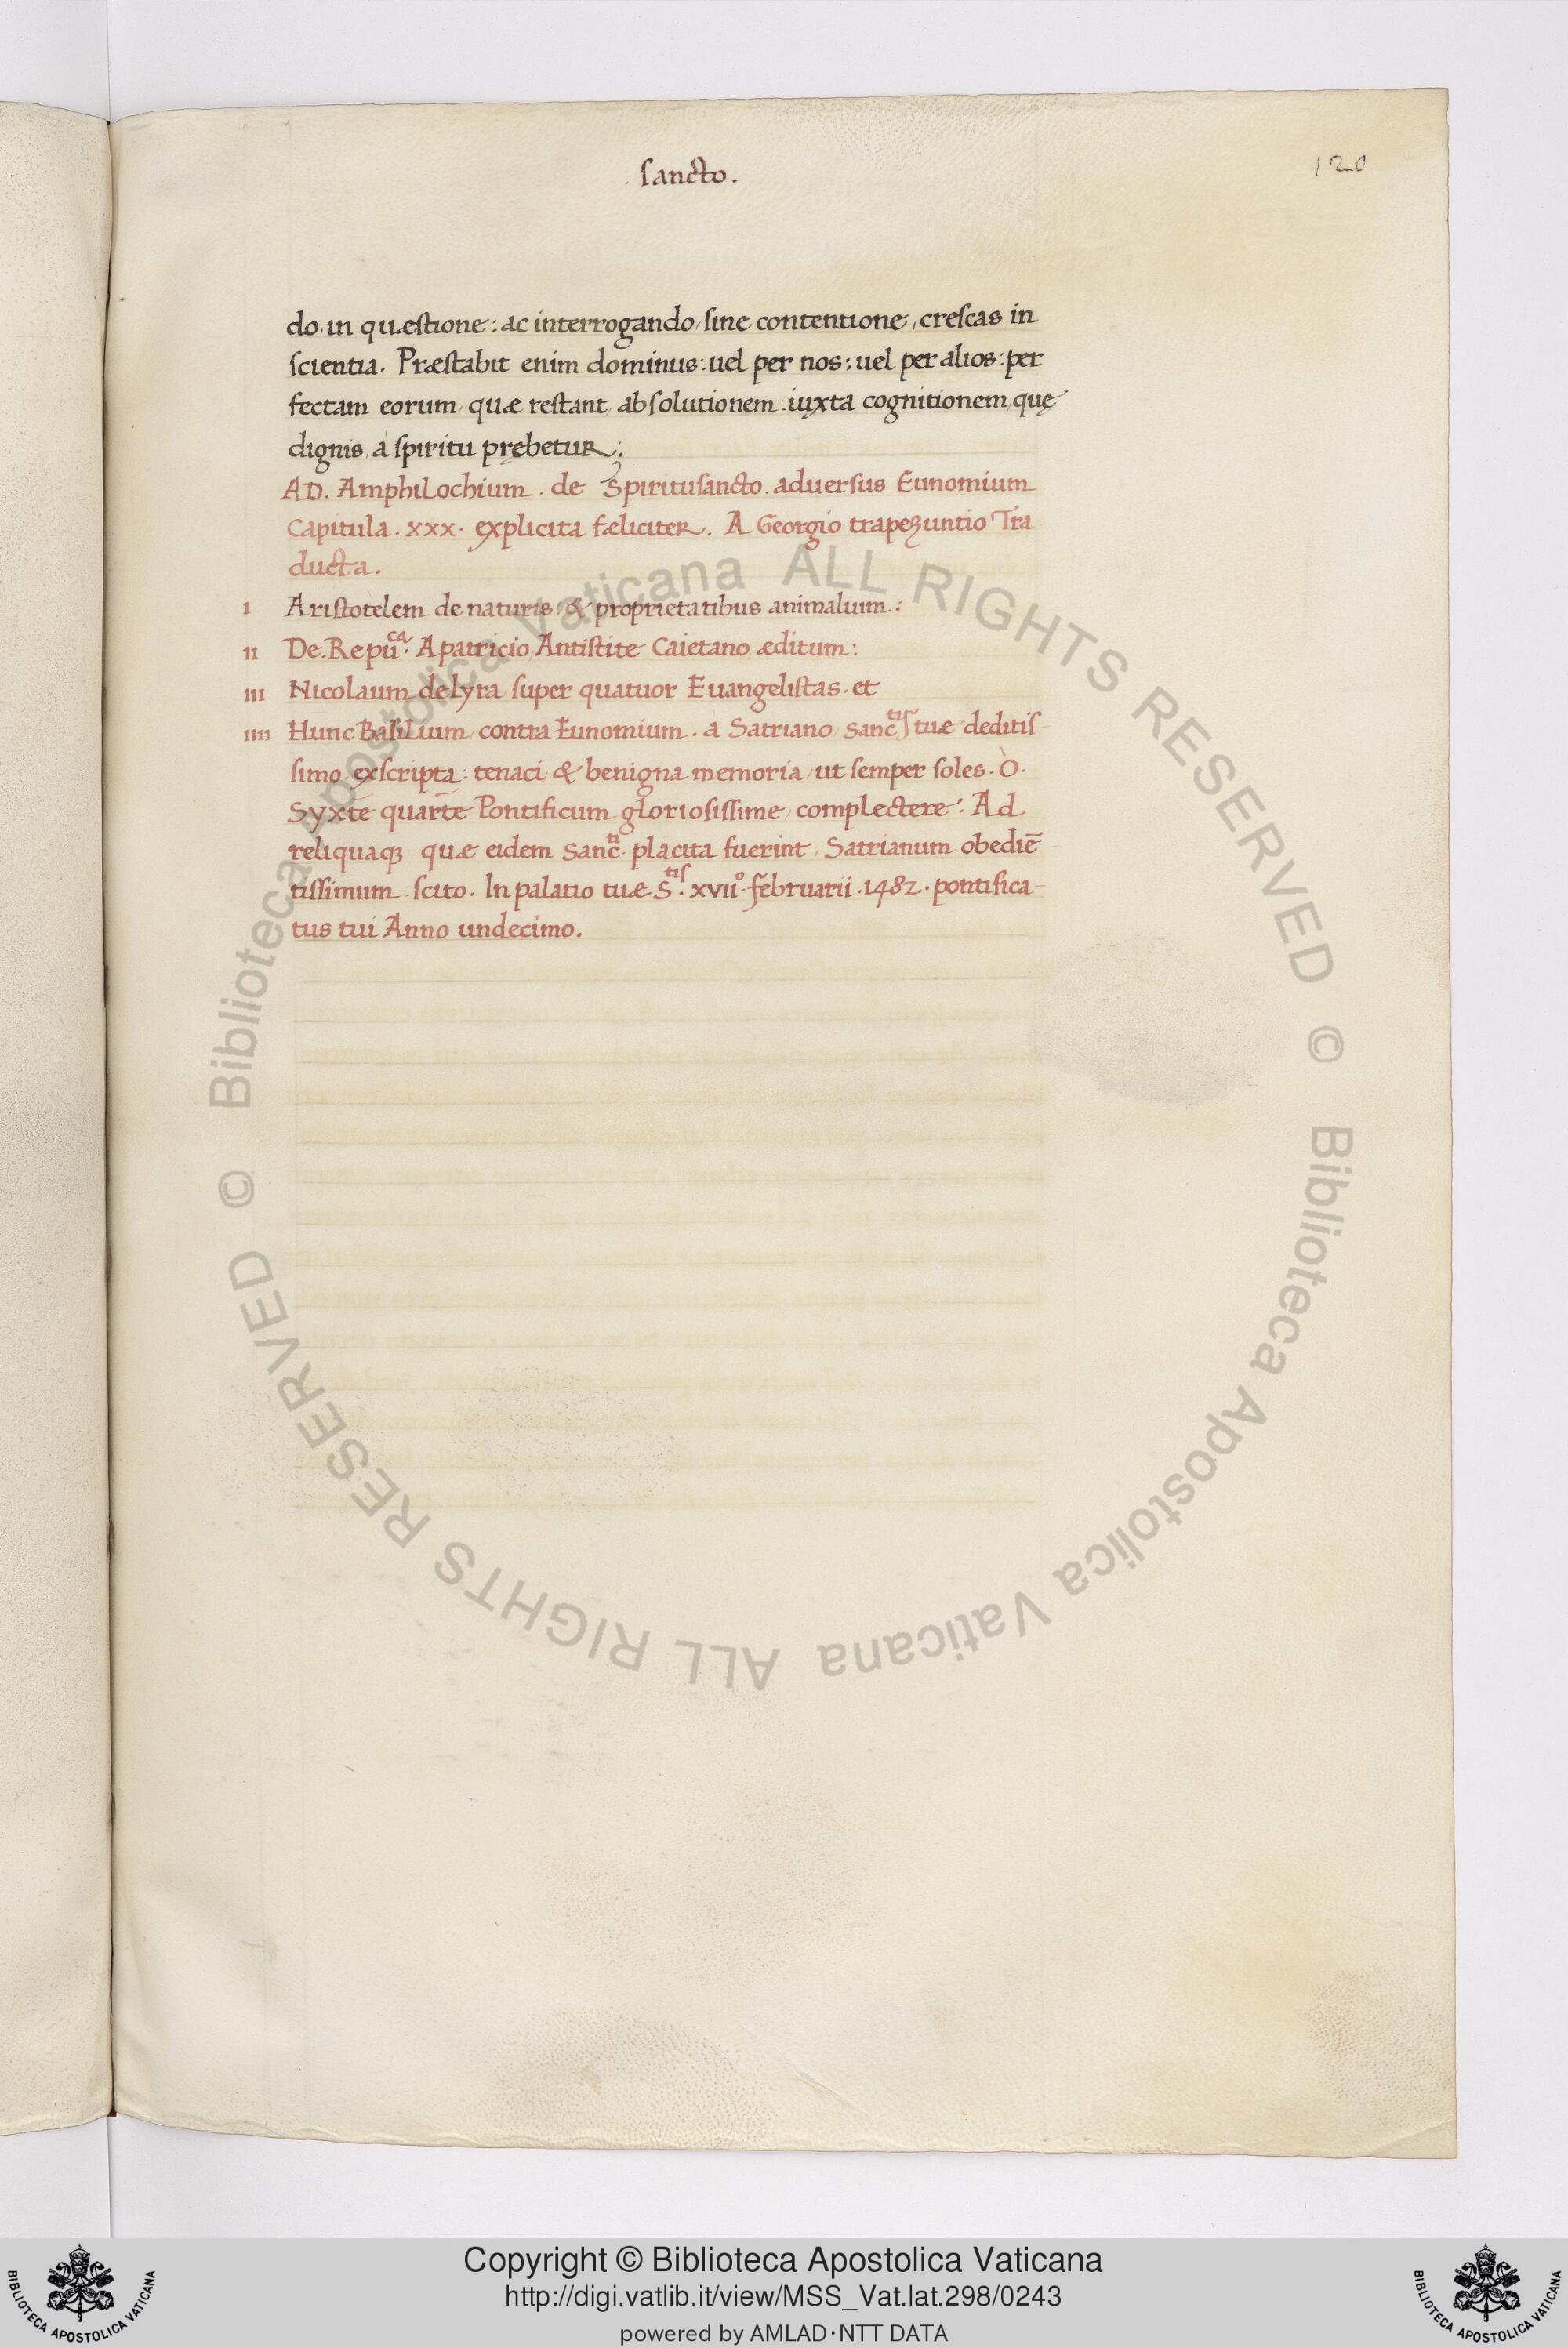 . sancto .
120
do, in quæstione : ac interrogando, sine contentione, crescas in
scientia . Præstabit enim dominus : uel per nos : uel per alios : per
fectam eorum, quæ restant, absolutionem : iuxta cognitionem, quę
dignis, a spiritu prębetur ;
AD . Amphilochium . de Spiritusancto . aduersus Eunomium
Capitula . xxx . explicita fæliciter . A Georgio trapezuntio Tra-
ducta .
I Aristotelem de naturis & proprietatibus animalium :
II De . Repu^ca . A patricio, Antistite Caietano æditum :
III Nicolaum de lyra super quatuor Euangelistas . et
IIII Hunc Basilium, contra Eunomium . a Satriano, sanc^tis tuæ deditis-
simo, exscripta : tenaci, & benigna memoria, ut semper soles . Ò .
Syxte quarte Pontificum gloriosissime, complectere : Ad
reliquaqꝫ quæ eidem sanc^ti . placita fuerint, Satrianum obediē-
tissimum scito . In palatio tuæ . S^tis . xvii^o . februarii . 1482 . pontifica-
tus tui Anno undecimo .
© Biblioteca Apostolica Vaticana ALL RIGHTS RESERVED
© Biblioteca Apostolica Vaticana ALL RIGHTS RESERVED
BIBLIOTECA APOSTOLICA VATICANA
Copyright © Biblioteca Apostolica Vaticana
http://digi.vatlib.it/view/MSS_Vat.lat.298/0243
powered by AMLAD·NTT DATA
BIBLIOTECA APOSTOLICA VATICANA